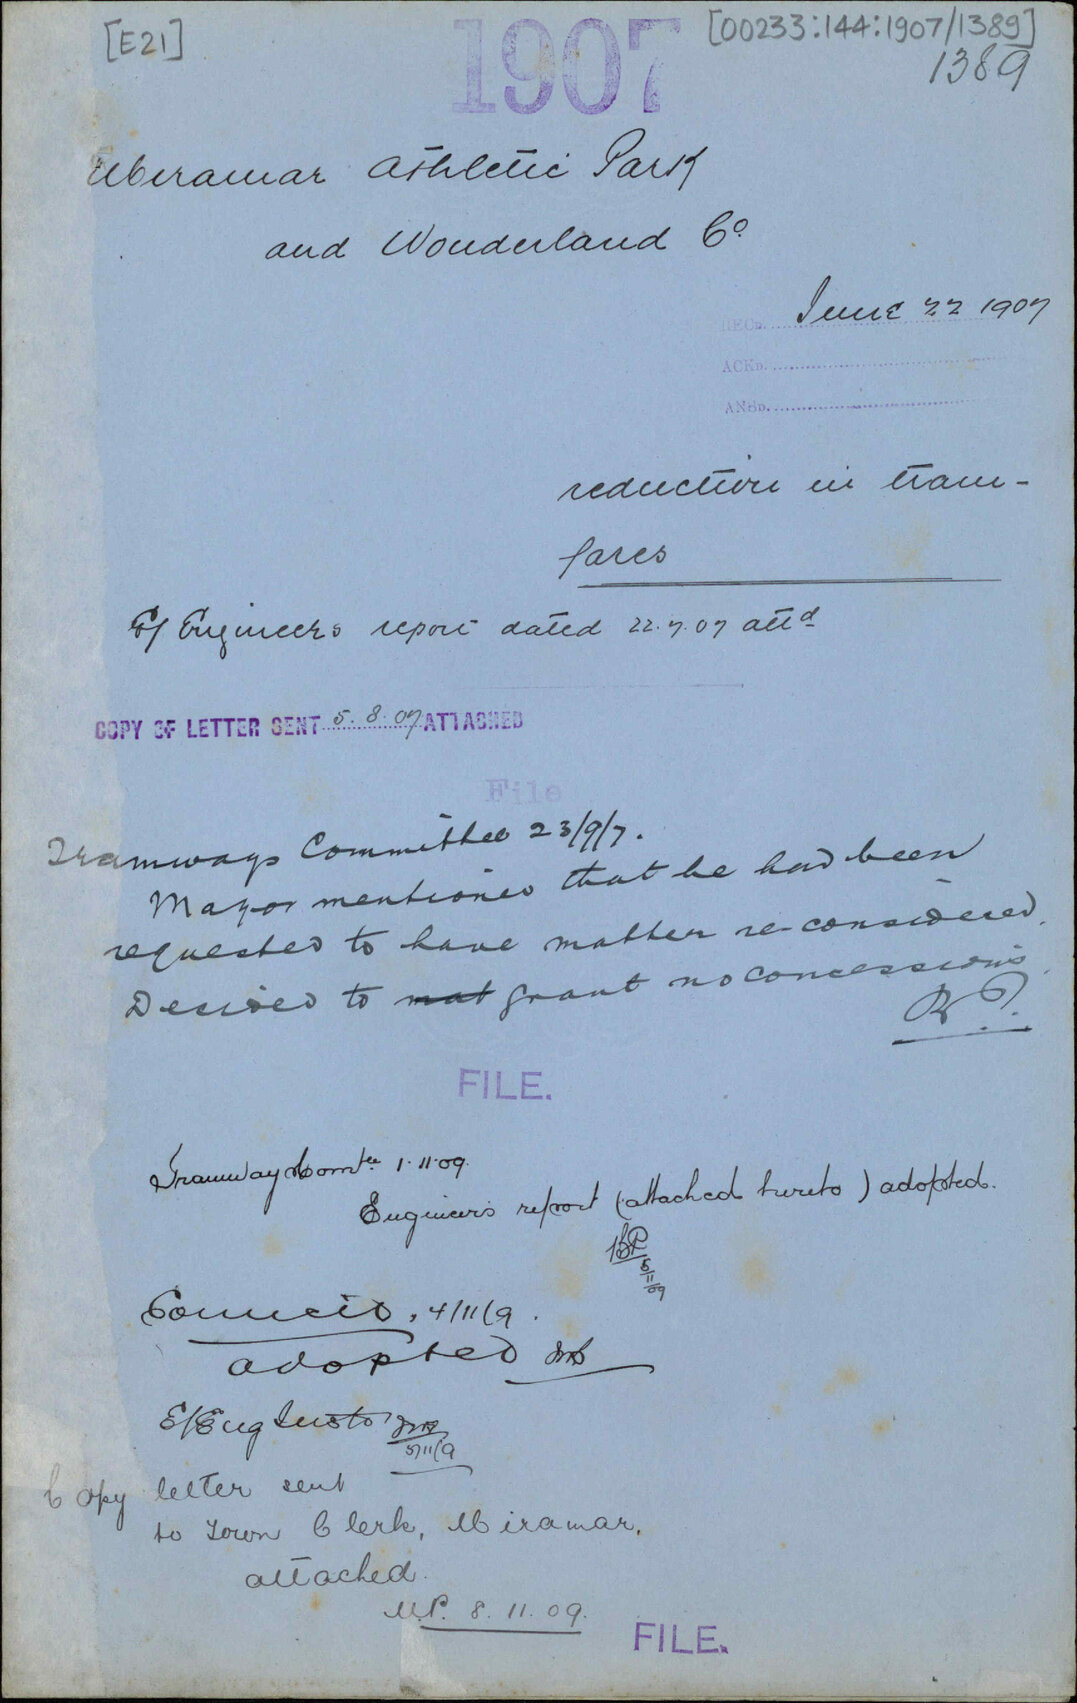 [E21]
[00233:144:1907/1389]
1907
1389
Miramar Athletic Park
and Wonderland Co
June 22 1907
RECD.
ACKD.
ANSD.
reduction in tram-
fares
E/ Engineers report dated 22.7.07 attd
COPY OF LETTER SENT 5.8.07 ATTACHED
File
Tramways Committee 23/9/7.
Mayor mentioned that he had been
requested to have matter re-considered.
Decided to not grant no concessions
FILE.
Tramway Comtee 1.11.09
Engineer's report (attached hereto) adopted.
5/11/09
Council, 4/11/9.
adopted
E/Eng
5/11/9
Copy letter sent
to Town Clerk, Miramar,
attached.
M.P. 8.11.09.
FILE.